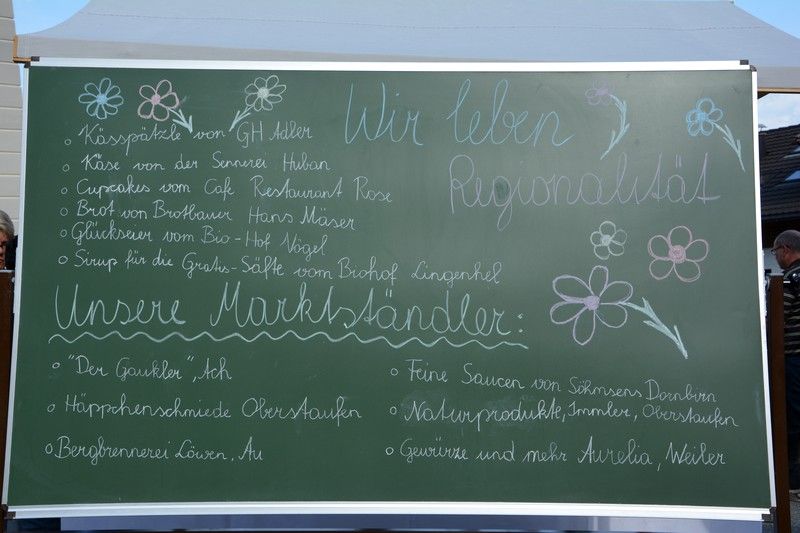 Wir leben
Regionalität
o Kässpätzle von GH Adler
o Käse von der Sennerei Huban
o Cupcakes vom Cafe Restaurant Rose
o Brot von Brotbauer Hans Mäser
o Glückseier vom Bio-Hof Vögel
o Sirup für die Gratis-Säfte vom Biohof Lingenhel
Unsere Marktständler:
o "Der Gaukler", Ach
o Häppchenschmiede Oberstaufen
o Bergbrennerei Löwen, Au
o Feine Saucen von Söhmsens Dornbirn
o Naturprodukte, Immler, Oberstaufen
o Gewürze und mehr Aurelia, Weiler